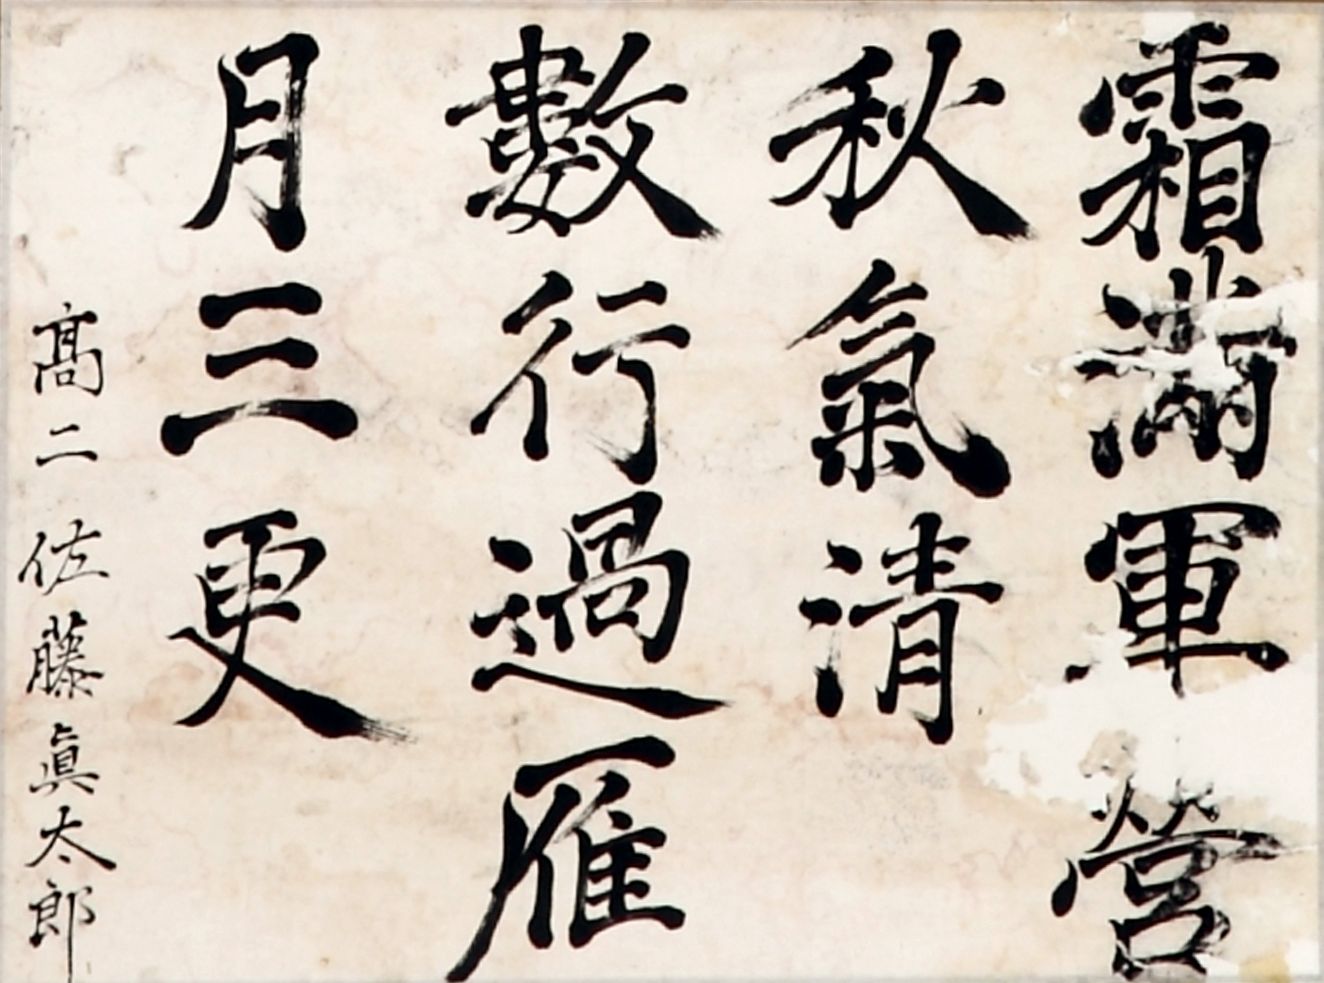 霜滿軍營
秋氣清
數行過雁
月三更
高二佐藤眞太郎